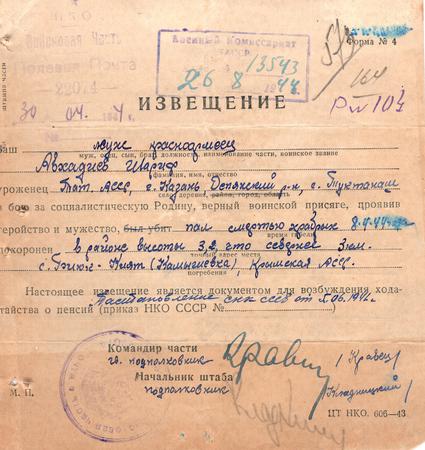 Н К О
Войсковая Часть
Полевая Почта
22074
30 04 194 4
Военный Комиссариат
13543
26 8 1944
Форма № 4
164
ИЗВЕЩЕНИЕ
Ваш муж красноармеец
муж, сын, брат, должность, наименование части, воинское звание
Авхадиев Шариф
(фамилия, имя, отчество)
уроженец Тат. АССР, г. Казань р-н, с.
деревня, район, город, область
в бою за социалистическую Родину, верный воинской присяге, проявив
геройство и мужество, был убит пал смертью храбрых 8.4.44
время гибели
похоронен в районе высоты 3,2, что севернее 3 км.
точный адрес места
с. Кият (Камышевка) Крымская АССР.
погребения
Настоящее извещение является документом для возбуждения хода-
Постановление СНК СССР от 5.06.
тайства о пенсии (приказ НКО СССР №
Командир части
гв. подполковник Кравец / Кравец /
Начальник штаба
подполковник
М. П.
ЦТ НКО. 606—43